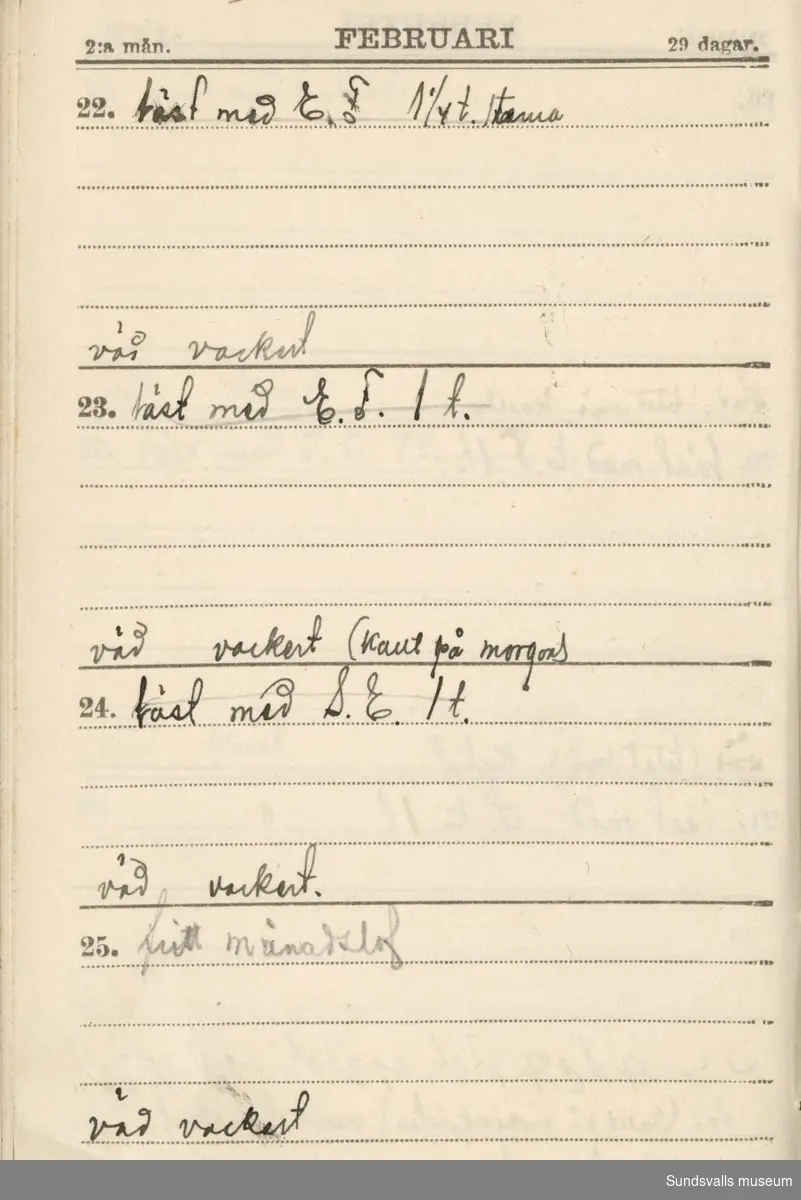 2:a mån. FEBRUARI 29 dagar.
22. läst med E. F 1 1/4 t.
väd vackert
23. läst med E. F. 1 t.
väd vackert (kallt på morgon)
24. läst med S. E. 1 t.
väd vackert.
25. fritt månadslof
väd vackert
Sundsvalls museum